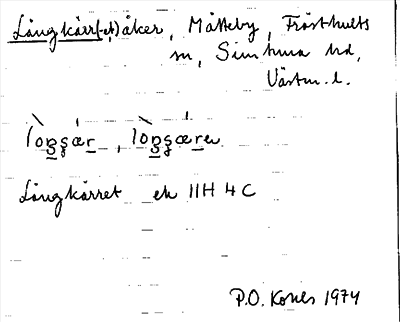 Långkärr(et)åker, Mätteby, Frösthults
sn, Simtuna hd,
Västm. l.
lòŋʂær, lòŋʂæreɴ
Långkärret ek 11H 4C
P.O. Kones 1974